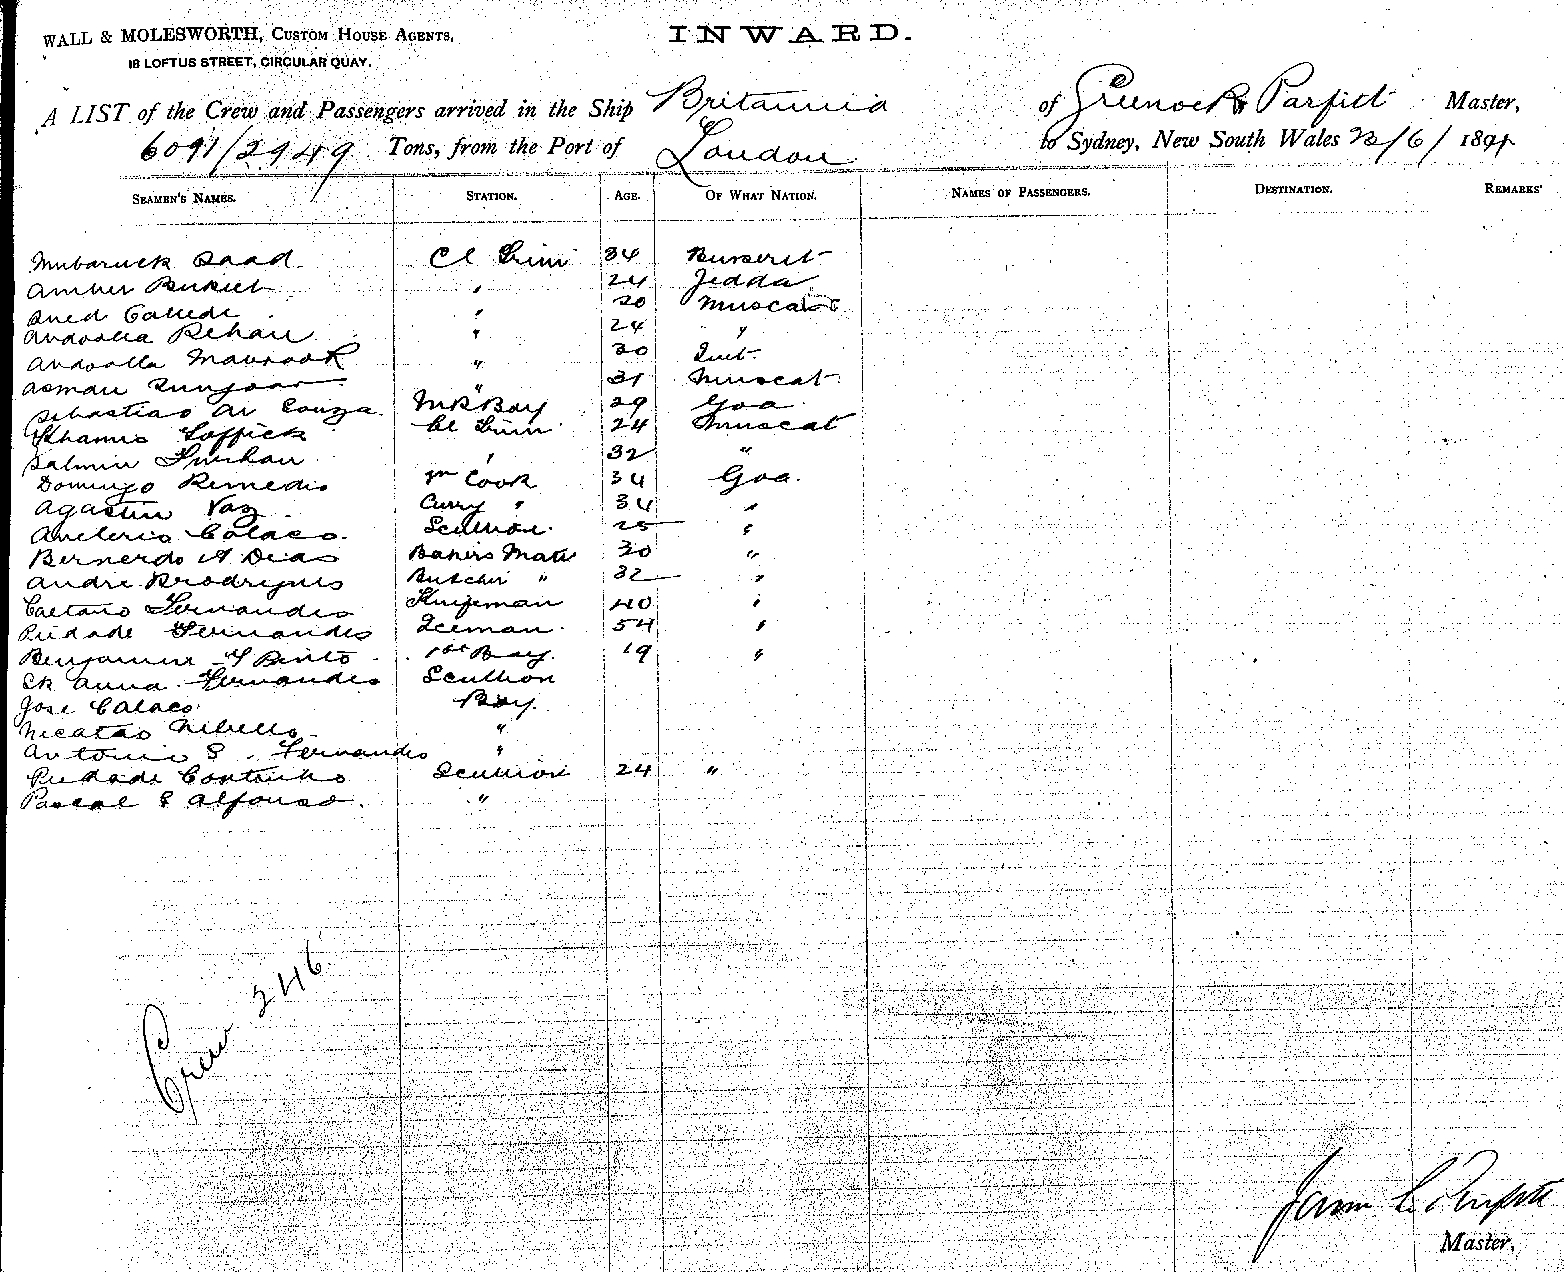 WALL & MOLESWORTH, CUSTOM HOUSE AGENTS,
18 LOFTUS STREET, CIRCULAR QUAY.
INWARD.
A LIST of the Crew and Passengers arrived in the Ship Britannia of Greenock Parfitt Master,
6091/2949 Tons, from the Port of London to Sydney, New South Wales /6/ 189
SEAMEN'S NAMES. STATION. AGE. OF WHAT NATION. NAMES OF PASSENGERS. DESTINATION. REMARKS
Mubaruck Saad Cl Trim 34
Amber " 24 Jedda
" 20 Muscat
Rehan " 24 "
Andoolla Mabrook " 30
Asman " 31 Muscat
Sebastiao Souza Boy 29 Goa
Khamis Toffick Cl Trim 24 Muscat
Salmin Furhan " 32 "
Domingo Remedis Cook 34 Goa.
Agastin Vaz Curry " 34 "
Colaco. Scullion. 25 "
Bernerdo A Dias Bakers Mate 30 "
Andre Rrodrigues Butcher " 32 "
Caetano Fernandes Knifeman 40 "
Piedade Fernandes Iceman. 54 "
Benjamin Pinto 1st Boy. 19 "
Anna Fernandes Scullion
Jose Colaco Boy.
"
Antonio S. Fernandes "
Piedade Coutinho Scullion 24 "
Pascal S Alfonso. "
Crew 246
Parfitt
Master,